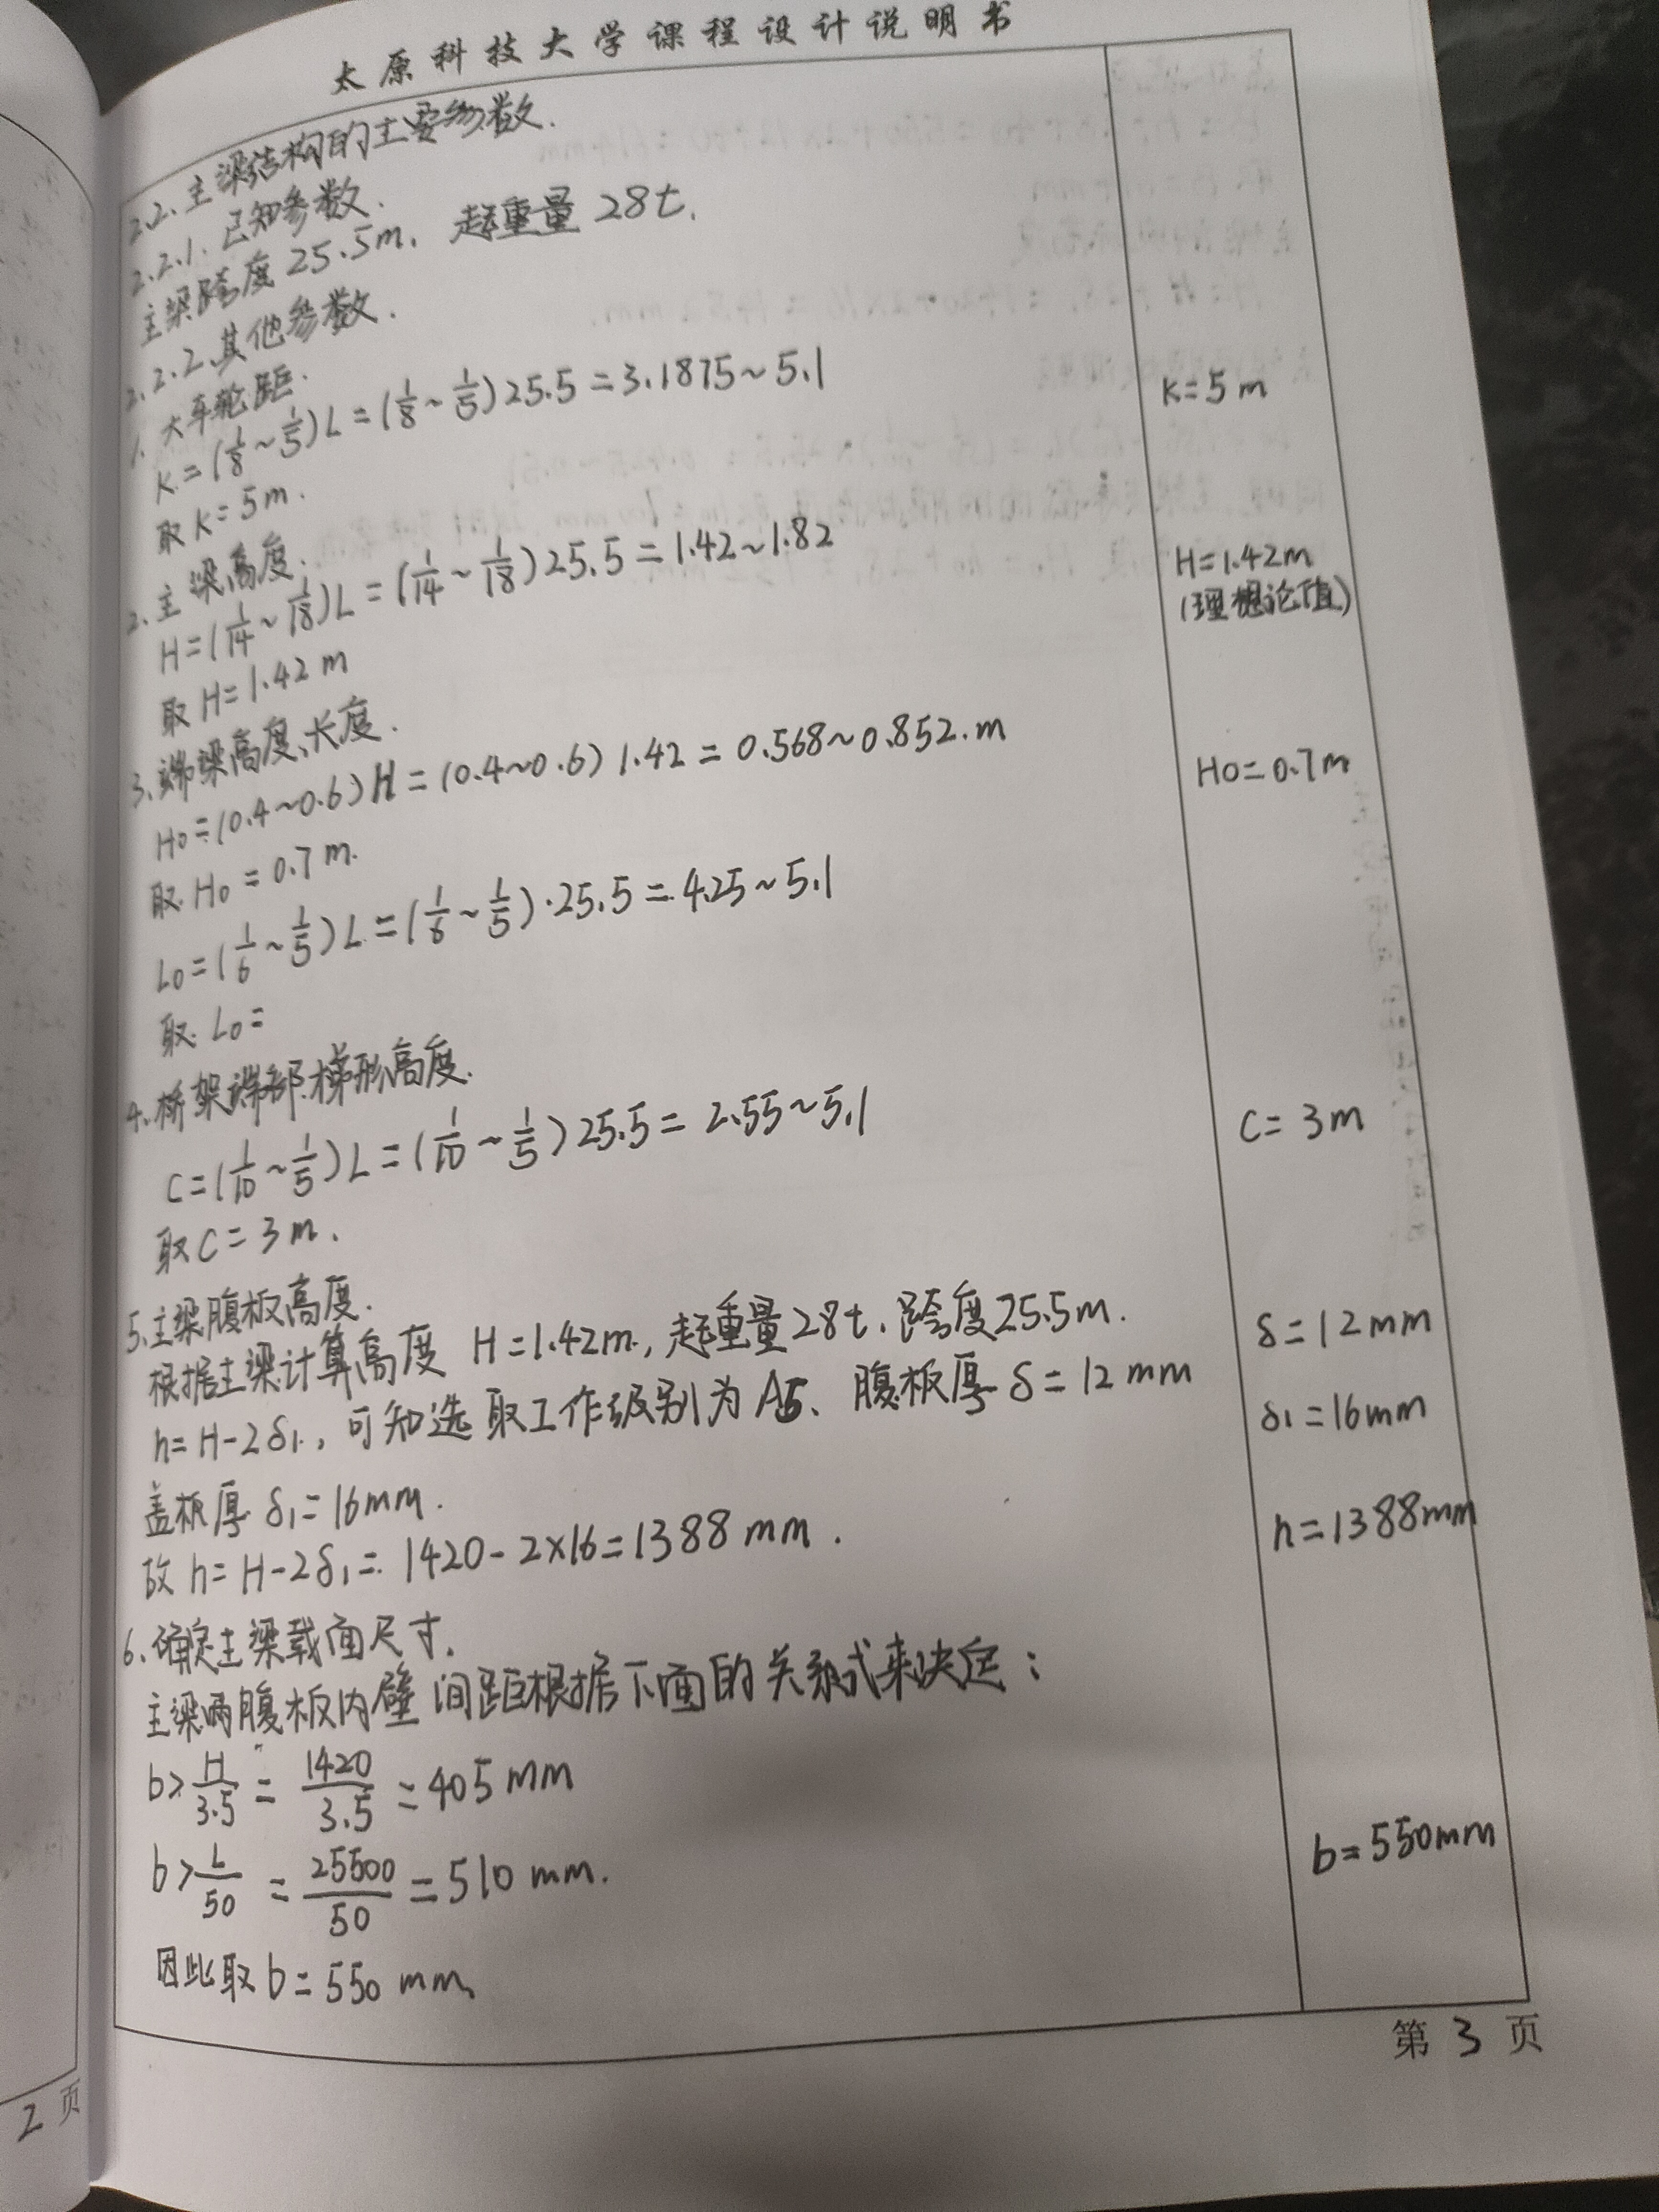 太原科技大学课程设计说明书
2.2、主梁结构的主要参数.
2.2.1、已知参数.
主梁跨度 25.5m、起重量 28t.
2.2.2、其他参数.
1、大车轮距.
K=(1/8~1/5)L=(1/8~1/5)25.5=3.1875~5.1
K=5m
取K=5m.
2、主梁高度.
H=(1/14~1/18)L=(1/14~1/18)25.5=1.42~1.82
H=1.42m
(理想论值)
取H=1.42m
3、端梁高度、长度.
H0=(0.4~0.6)H=(0.4~0.6)1.42=0.568~0.852.m
H0=0.7m
取H0=0.7m.
L0=(1/6~1/5)L=(1/6~1/5)·25.5=4.25~5.1
取L0=
4、桥架端部梯形高度.
C=(1/10~1/5)L=(1/10~1/5)25.5=2.55~5.1
C=3m
取C=3m.
5、主梁腹板高度.
根据主梁计算高度 H=1.42m,起重量28t、跨度25.5m.
δ=12mm
h=H-2δ1,可知选取工作级别为A5、腹板厚δ=12mm
δ1=16mm
盖板厚δ1=16mm.
h=1388mm
故h=H-2δ1=1420-2×16=1388mm.
6、确定主梁载面尺寸.
主梁两腹板内壁间距根据下面的关系式来决定:
b>H/3.5=1420/3.5=405mm
b>L/50=25500/50=510mm.
b=550mm
因此取b=550mm
第3页
2页